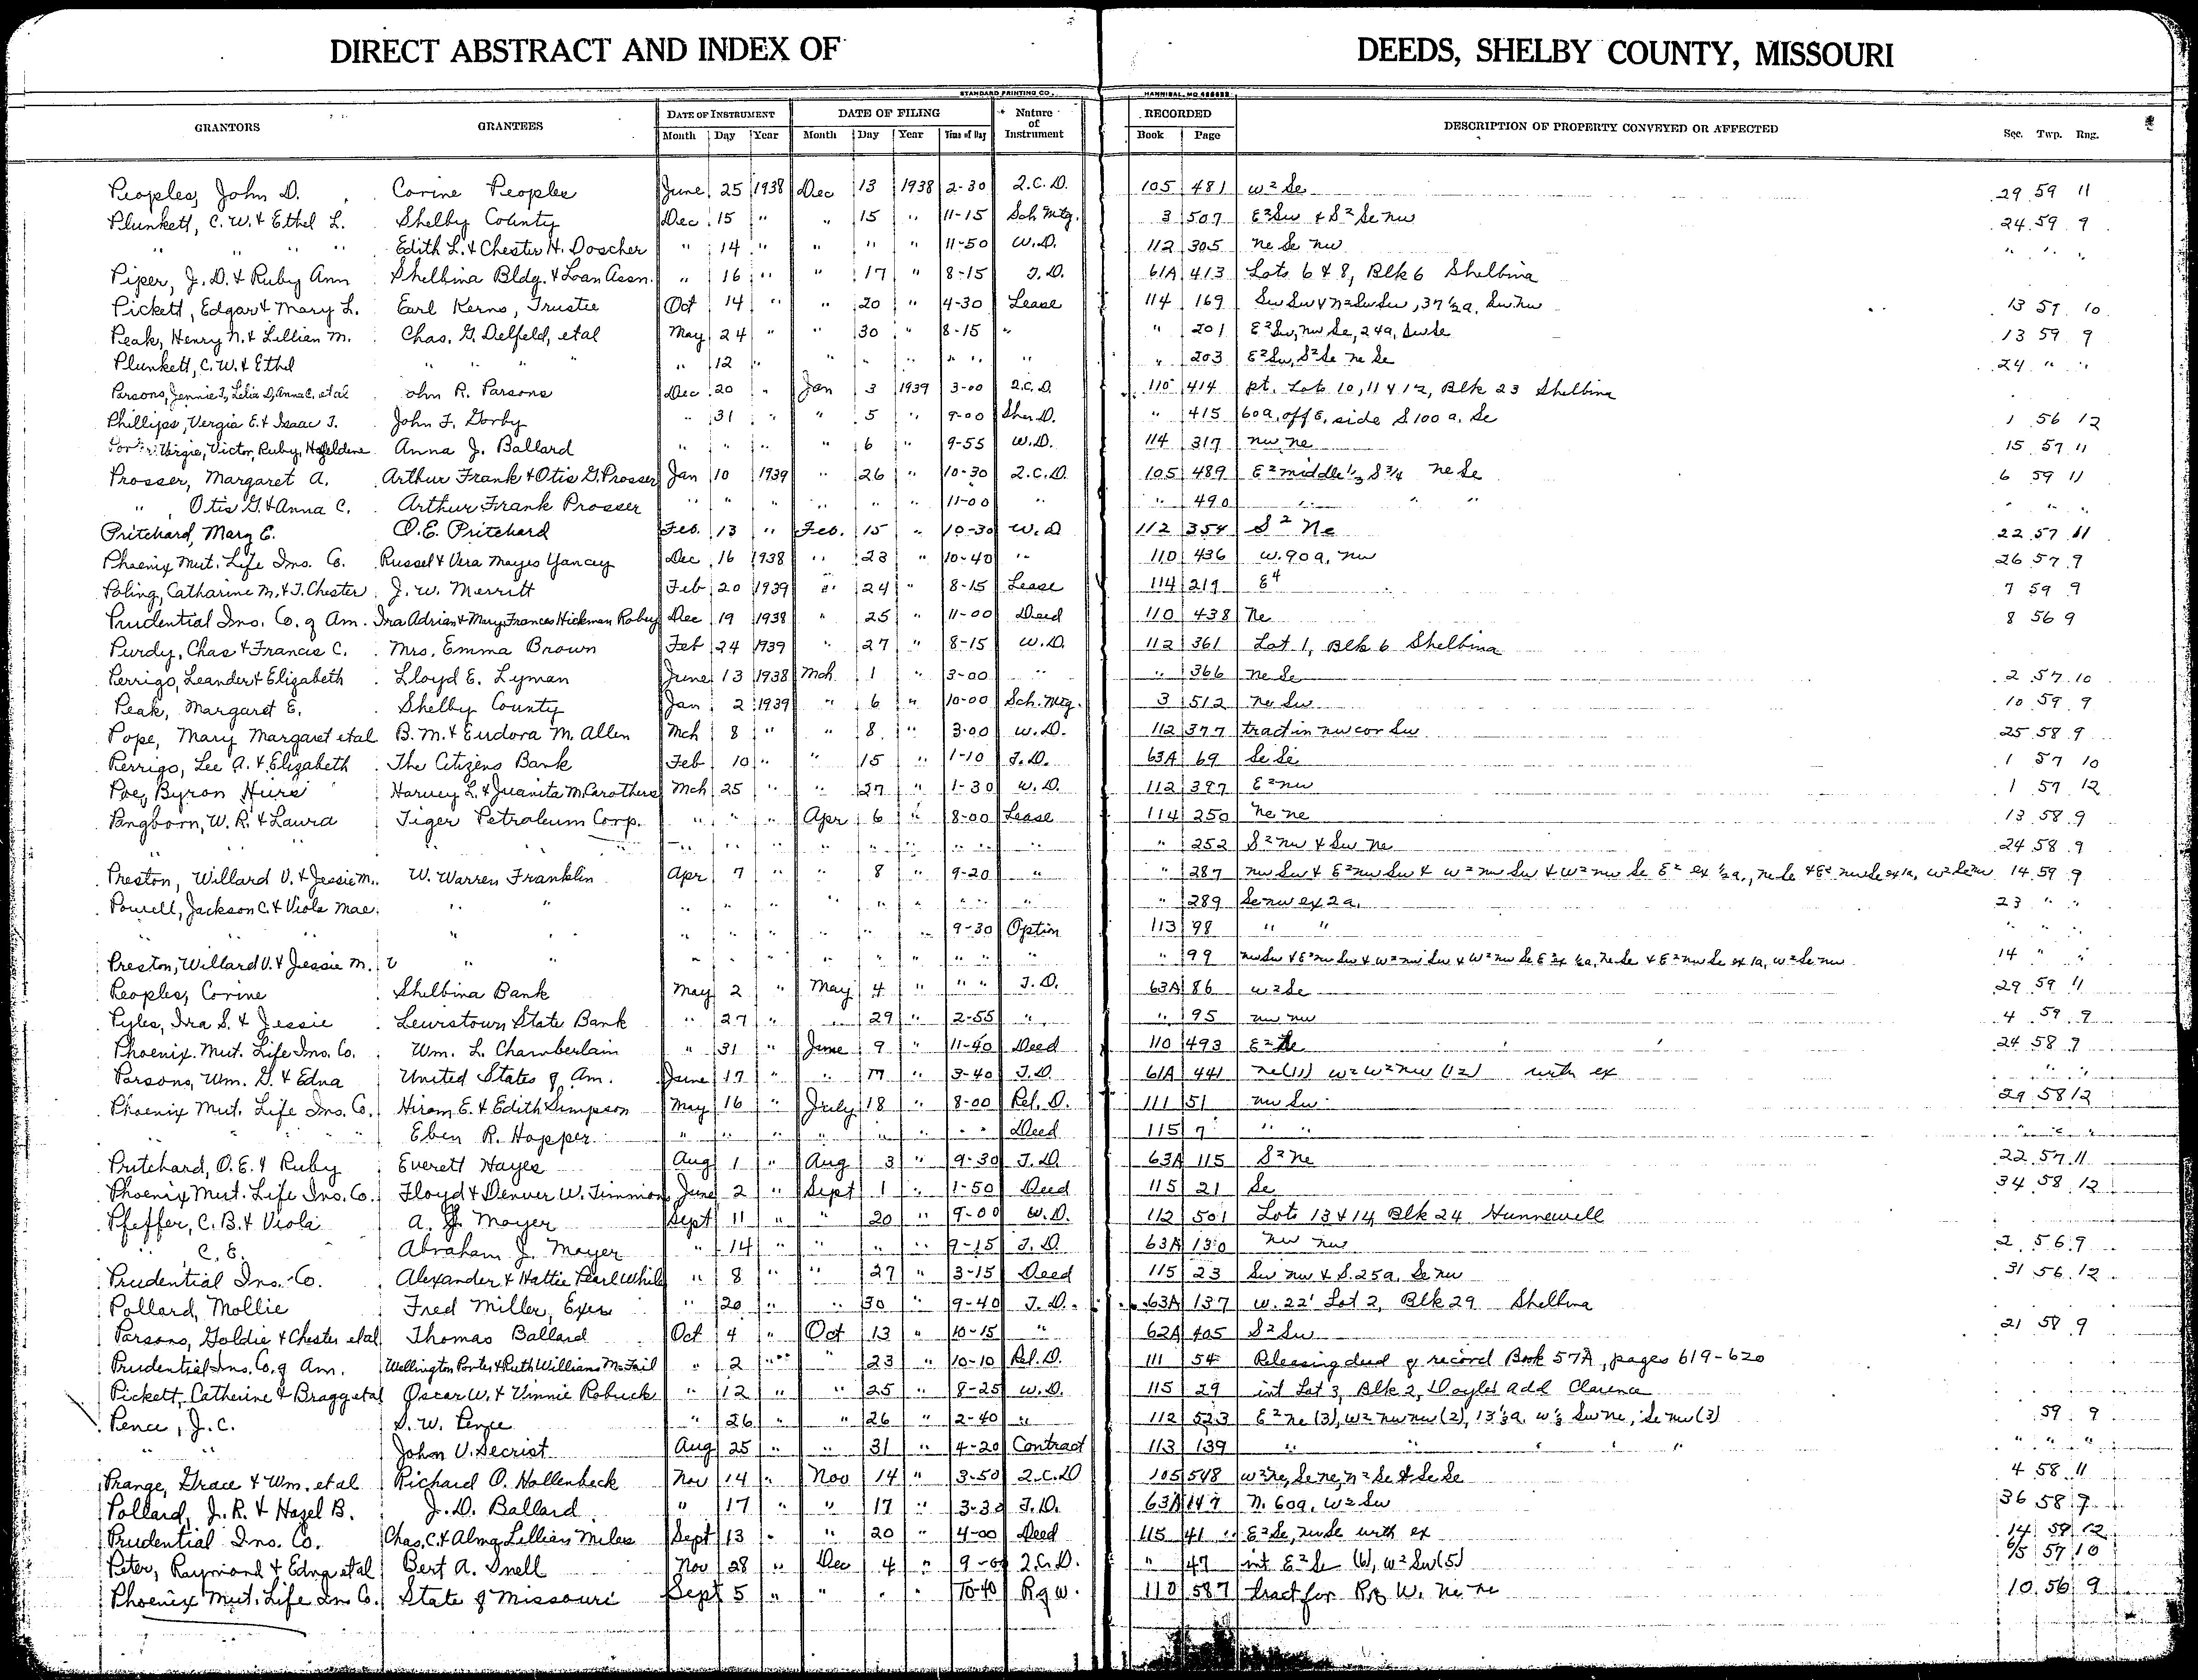 DIRECT ABSTRACT AND INDEX OF DEEDS, SHELBY COUNTY, MISSOURI
STANDARD PRINTING CO. HANNIBAL, MO
GRANTORS GRANTEES DATE OF INSTRUMENT DATE OF FILING Nature of Instrument RECORDED DESCRIPTION OF PROPERTY CONVEYED OR AFFECTED Sec. Twp. Rng.
Month Day Year Month Day Year Time of Day Book Page
Peoples, John D. Corine Peoples June 25 1938 Dec 13 1938 2-30 Q.C.D. 105 481 W² Se 29 59 11
Plunkett, C. W. & Ethel L. Shelby County Dec 15 " " 15 " 11-15 Sch Mtg. 3 507 E² Sw & S² Se nw 24 59 9
" " " " Edith L. & Chester H. Doscher " 14 " " " " 11-50 W.D. 112 305 ne Se nw " " "
Piper, J. D. & Ruby Ann Shelbina Bldg. & Loan Assn. " 16 " " 17 " 8-15 T.D. 61A 413 Lots 6 & 8, Blk 6 Shelbina
Pickett, Edgar & Mary L. Earl Kerns, Trustee Oct 14 " " 20 " 4-30 Lease 114 169 Sw Sw & n² Sw Sw, 37 ½ a, Sw nw 13 57 10
Peak, Henry N. & Lillian M. Chas. G. Delfeld, etal May 24 " " 30 " 8-15 " " 201 E² Sw, nw Se, 24a, Sw Se 13 59 9
Plunkett, C. W. & Ethel " " " " 12 " " " " " " " " 203 E² Sw, S² Se ne Se 24 " "
Parsons, Jennie T, Lelia D, Anna C. etal ohn R. Parsons Dec 20 " Jan 3 1939 3-00 Q.C.D. 110 414 pt. Lots 10, 11 & 12, Blk 23 Shelbina
Phillips, Vergia E. & Isaac T. John F. Gorby " 31 " " 5 " 9-00 Sher. D. " 415 60 a, off E. side S 100 a. Se 1 56 12
Virgie, Victor, Ruby, Anna J. Ballard " " " " 6 " 9-55 W.D. 114 317 nw ne 15 57 11
Prosser, Margaret A. Arthur Frank & Otis G. Prosser Jan 10 1939 " 26 " 10-30 Q.C.D. 105 489 E² middle ⅓ S ¾ ne Se 6 59 11
" Otis G. & Anna C. Arthur Frank Prosser " " " " " " 11-00 " " 490 " " " " " "
Pritchard, Mary E. O. E. Pritchard Feb. 13 " Feb. 15 " 10-30 W.D 112 354 S² Ne 22 57 11
Phoenix Mut. Life Ins. Co. Russel & Vera Mayes Yancey Dec 16 1938 " 23 " 10-40 " 110 436 W. 90 a, nw 26 57 9
Poling, Catharine M. & T. Chester J. W. Merritt Feb 20 1939 " 24 " 8-15 Lease 114 219 E⁴ 7 59 9
Prudential Ins. Co. of Am. Ira Adrian & Mary Frances Hickman Robey Dec 19 1938 " 25 " 11-00 Deed 110 438 Ne 8 56 9
Purdy, Chas & Francis C. Mrs. Emma Brown Feb 24 1939 " 27 " 8-15 W.D. 112 361 Lot 1, Blk 6 Shelbina
Perrigo, Leander & Elizabeth Lloyd E. Lyman June 13 1938 Mch 1 " 3-00 " " 366 ne Se 2 57 10
Peak, Margaret E. Shelby County Jan 2 1939 " 6 " 10-00 Sch. Mtg. 3 512 ne Sw 10 59 9
Pope, Mary Margaret etal B. M. & Eudora M. Allen Mch 8 " " 8 " 3-00 W.D. 112 377 tract in nw cor Sw 25 58 9
Perrigo, Lee A. & Elizabeth The Citizens Bank Feb 10 " " 15 " 1-10 T.D. 63A 69 Se Se 1 57 10
Poe, Byron Heirs Harvey L. & Juanita M. Carothers Mch 25 " " 27 " 1-30 W.D. 112 397 E² nw 1 57 12
Pangborn, W. R. & Laura Tiger Petroleum Corp. " " " Apr 6 " 8-00 Lease 114 250 ne ne 13 58 9
" " " " " " " " " " " " 252 S² nw & Sw ne 24 58 9
Preston, Willard V. & Jessie M. W. Warren Franklin Apr 7 " " 8 " 9-20 " " 287 nw Sw & E² nw Sw & W² nw Sw & W² nw Se E² ex ½a, ne Se & E² nw Se ex 1a, W² Se nw 14 59 9
Powell, Jackson C. & Viola Mae " " " " " " " " " " " 289 Se nw ex 2 a. 23 " "
" " " " " " " " " " 9-30 Option 113 98 " " " " "
Preston, Willard V. & Jessie M. " " " " " " " " " " " 99 nw Sw & E² nw Sw & W² nw Sw & W² nw Se E² ex ½a, ne Se & E² nw Se ex 1a, W² Se nw 14 " "
Peoples, Corine Shelbina Bank May 2 " May 4 " " " T.D. 63A 86 W² Se 29 59 11
Pyles, Ira S. & Jessie Lewistown State Bank " 27 " " 29 " 2-55 " " 95 nw nw 4 59 9
Phoenix Mut. Life Ins. Co. Wm. L. Chamberlain " 31 " June 9 " 11-40 Deed 110 493 E² 24 58 9
Parsons, Wm. G. & Edna United States of Am. June 17 " " 17 " 3-40 T.D. 61A 441 ne (11) W² W² nw (12) with ex " " "
Phoenix Mut. Life Ins. Co. Hiram E. & Edith Simpson May 16 " July 18 " 8-00 Rel. D. 111 51 nw Sw 29 58 12
" " " Eben R. Hopper " " " " " " " " Deed 115 7 " " " " "
Pritchard, O. E. & Ruby Everett Hayes Aug 1 " Aug 3 " 9-30 T.D. 63A 115 S² ne 22 57 11
Phoenix Mut. Life Ins. Co. Floyd & Denver W. Timmons June 2 " Sept 1 " 1-50 Deed 115 21 Se 34 58 12
Pfeffer, C. B. & Viola A. J. Moyer Sept 11 " " 20 " 9-00 W.D. 112 501 Lots 13 & 14 Blk 24 Hunnewell
" C. B. Abraham J. Moyer " 14 " " " " 9-15 T.D. 63A 130 nw nw 2 56 9
Prudential Ins. Co. Alexander & Hattie Pearl While " 8 " " 27 " 3-15 Deed 115 23 Sw nw & S. 25a. Se nw 31 56 12
Pollard, Mollie Fred Miller, Exer " 20 " " 30 " 9-40 T.D. 63A 137 W. 22' Lot 2, Blk 29 Shelbina
Parsons, Goldie & Chester etal Thomas Ballard Oct 4 " Oct 13 " 10-15 " 62A 405 S² Sw 21 58 9
Prudential Ins. Co. of Am. Wellington Porter & Ruth Williams McFail " 2 " " 23 " 10-10 Rel. D. 111 54 Releasing deed of record Book 57A, pages 619-620
Pickett, Catherine & Bragg etal Oscar W. & Vinnie Robuck " 12 " " 25 " 8-25 W.D. 115 29 int Lot 3, Blk 2, Doyles Add Clarence
Pence, J. C. S. W. Pence " 26 " " 26 " 2-40 " 112 523 E² ne (3), W² nw nw (2), 13⅓a. W ⅓ Sw ne, Se nw (3) 59 9
" " John V. Secrist Aug 25 " " 31 " 4-20 Contract 113 139 " " " " " " " "
Prange, Grace & Wm. etal Richard O. Hollenbeck Nov 14 " Nov 14 " 3-50 Q.C.D 105 548 W² ne, Se ne, n² Se & Se Se 4 58 11
Pollard, J. R. & Hazel B. J. D. Ballard " 17 " " 17 " 3-30 T.D. 63A 147 N. 60a, W² Sw 36 58 9
Prudential Ins. Co. Chas. C. & Alma Lillian Miles Sept 13 " " 20 " 4-00 Deed 115 41 E² Se, nw Se with ex 14 59 12
Peter, Raymond & Edna etal Bert A. Snell Nov 28 " Dec 4 " 9-00 Q.C.D. " 47 int E² Se (6), W² Sw (5) 6/5 57 10
Phoenix Mut. Life Ins Co. State of Missouri Sept 5 " " " " 10-40 R of W. 110 587 tract for R of W. ne ne 10 56 9